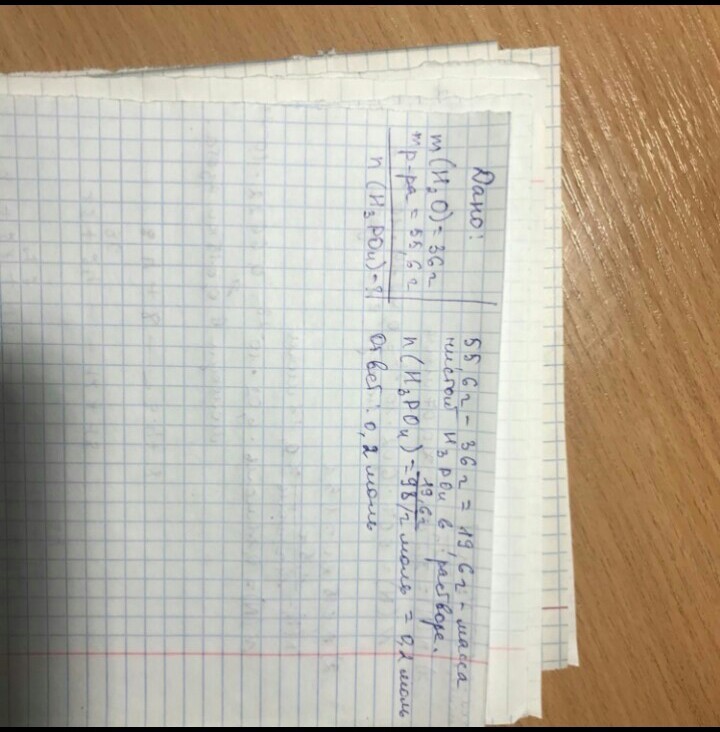 Дано:
m(H₂O)=36г
mр-ра = 55,6г
n(H₃PO₄)-?
55,6г - 36г = 19,6г - масса
чистой H₃PO₄ в растворе.
n(H₃PO₄)= 19,6г / 98г/моль = 0,2 моль
Ответ: 0,2 моль